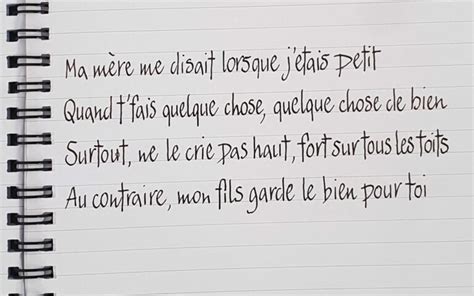 Ma mère me disait lorsque j'étais petit
Quand t'fais quelque chose, quelque chose de bien
Surtout, ne le crie pas haut, fort sur tous les toits
Au contraire, mon fils garde le bien pour toi